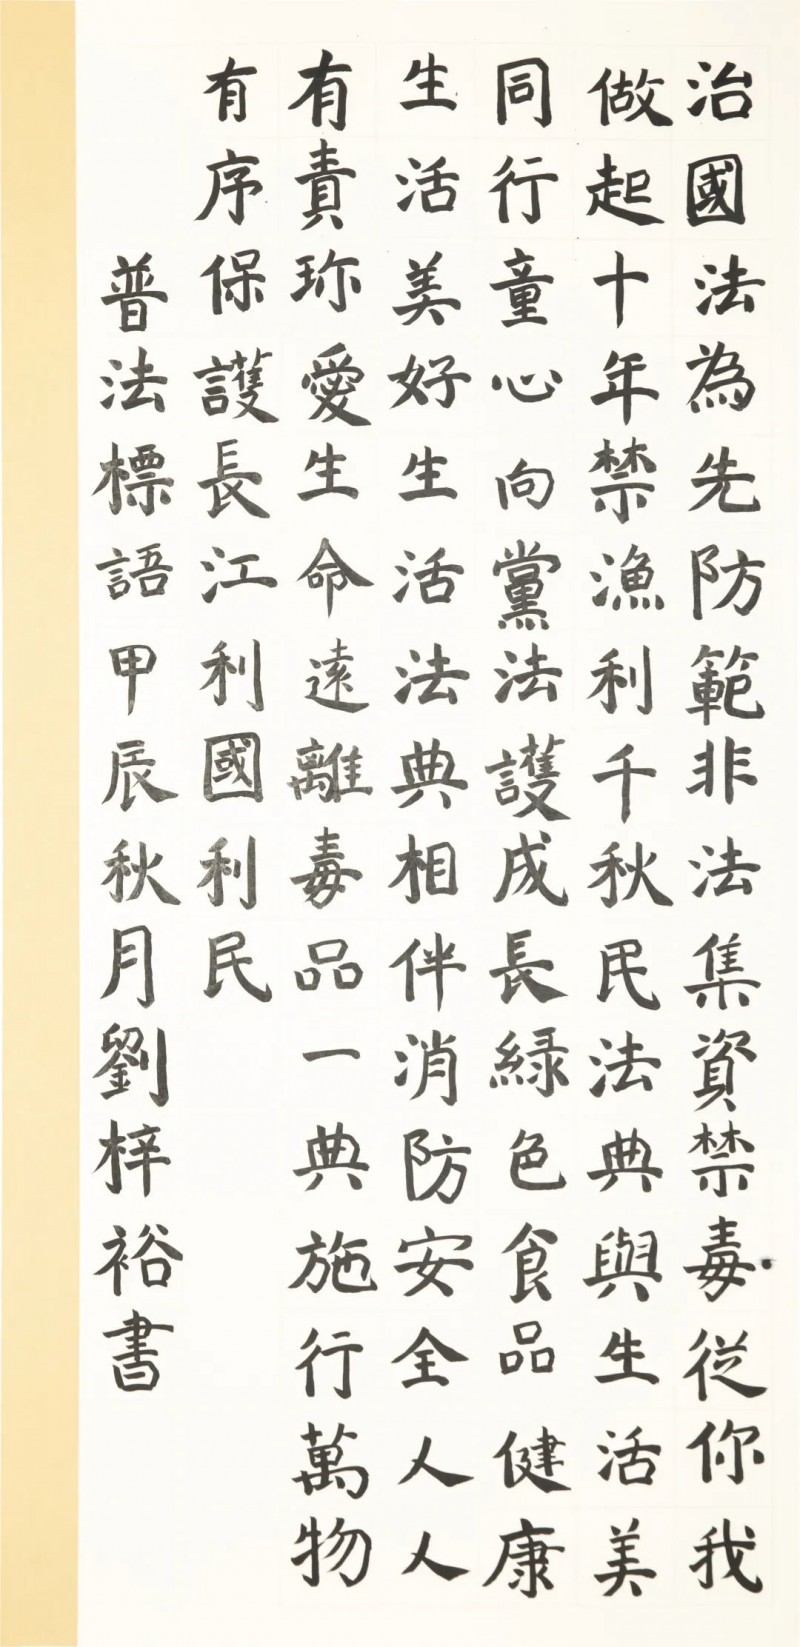 治國法為先防範非法集資禁毒從你我
做起十年禁漁利千秋民法典與生活美
同行童心向黨法護成長緑色食品健康
生活美好生活法典相伴消防安全人人
有責珎愛生命遠離毒品一典施行萬物
有序保護長江利國利民
普法標語甲辰秋月劉梓裕書